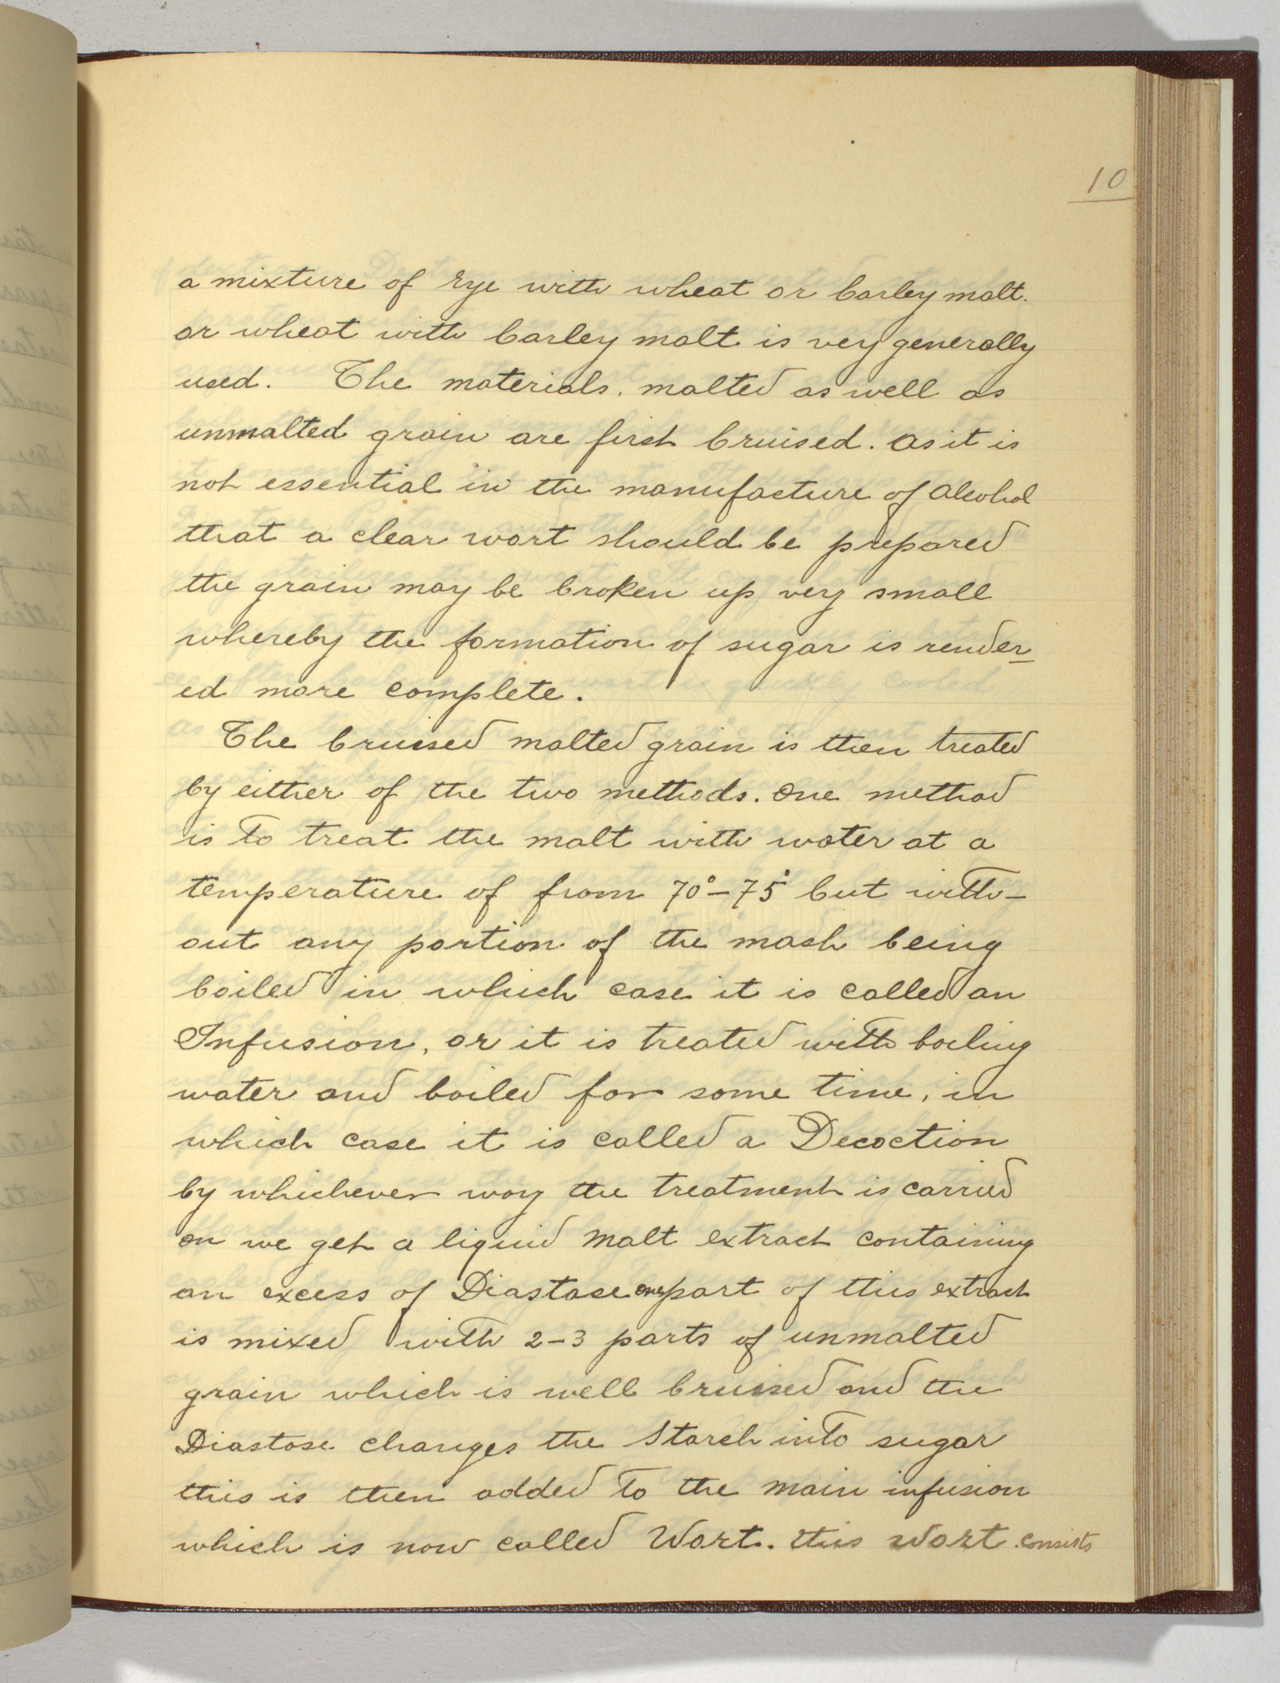 10
a mixture of rye with wheat or barley malt.
or wheat with barley malt is very generally
used. The materials, malted as well as
unmalted grain are first bruised. as it is
not essential in the manufacture of alcohol
that a clear wort should be prepared
the grain may be broken up very small
whereby the formation of sugar is render-
ed more complete.
The bruised malted grain is then treated
by either of the two methods. One method
is to treat the malt with water at a
temperature of from 70°-75° but with-
out any portion of the mash being
boiled in which case it is called an
Infusion, or it is treated with boiling
water and boiled for some time, in
which case it is called a Decoction
by whichever way the treatment is carried
on we get a liquid malt extract containing
an excess of Diastase one part of this extract
is mixed with 2-3 parts of unmalted
grain which is well bruised and the
Diastase changes the Starch into sugar
this is then added to the main infusion
which is now called Wort. this Wort consists